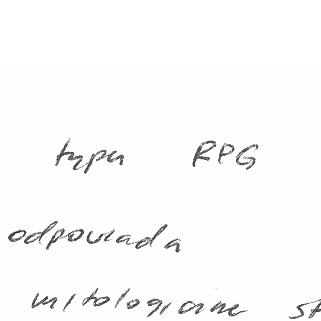 typu RPG
odpowiada
mitologiczne